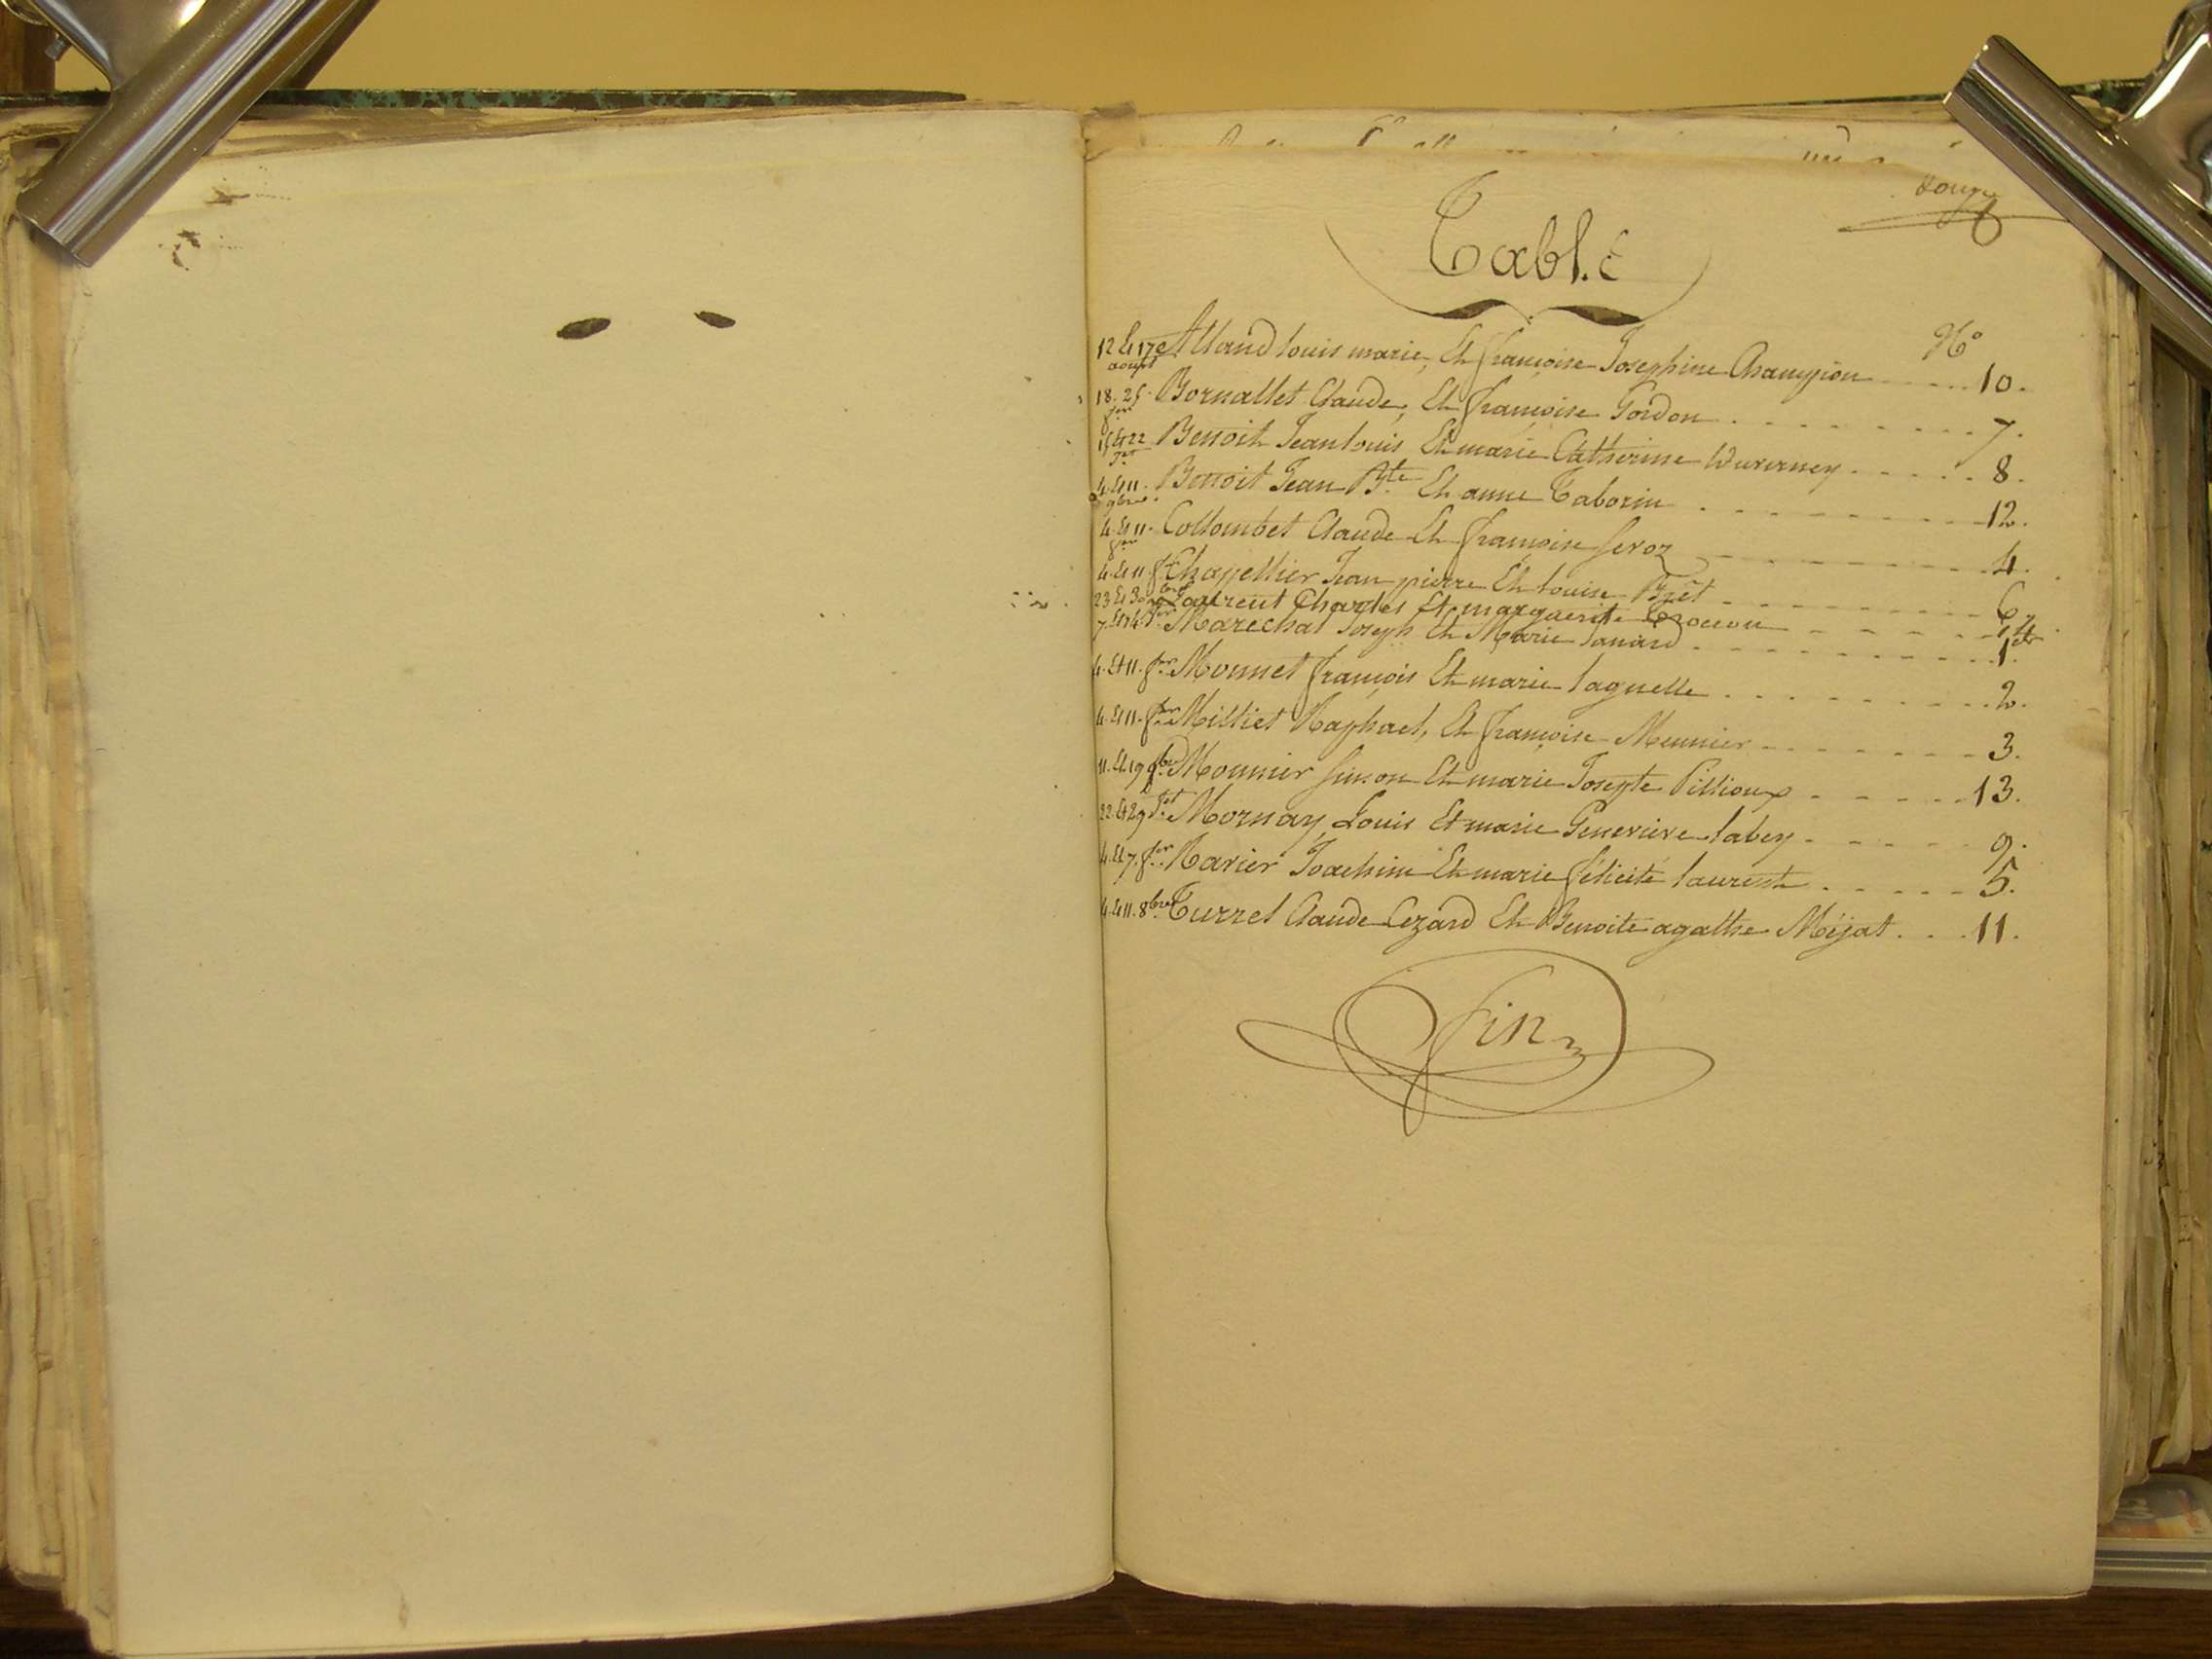 Table
N.º
12 Et 17 aoust Alland louis marie, Et françoise Josephine Champion 10.
18. 25. fer Bornallet Claude, Et françoise Gordon 7.
15 Et 22 Jet Benoit Jean louis Et marie Catherine Duverney 8.
4. Et 11. 9bre Benoit Jean Bte Et anne Taborin 12.
4. Et 11. fer Collombet Claude Et françoise feroz 4.
4. Et 11. fer Chapellier Jean pierre Et louise Brêt 6.
23. Et 30 Laurent Charles Et marguerite
7. Et 14 Marechal Joseph Et Marie Janard 1er
4. Et 11. fer Monnet françois Et marie laguelle 2.
4. Et 11. fer Milliet Raphael, Et françoise Meunier 3.
11. Et 19 9bre Mounier Simon Et marie Josepte Pillioux 13.
22. Et 29 Jet Mornay, Louis Et marie Genevieve labey 9.
4. Et 7. fer Ravier Joachim Et marie félicité laurent 5.
4. Et 11. 8bre Turrel Claude Cezard Et Benoite agathe Méjat 11.
fin